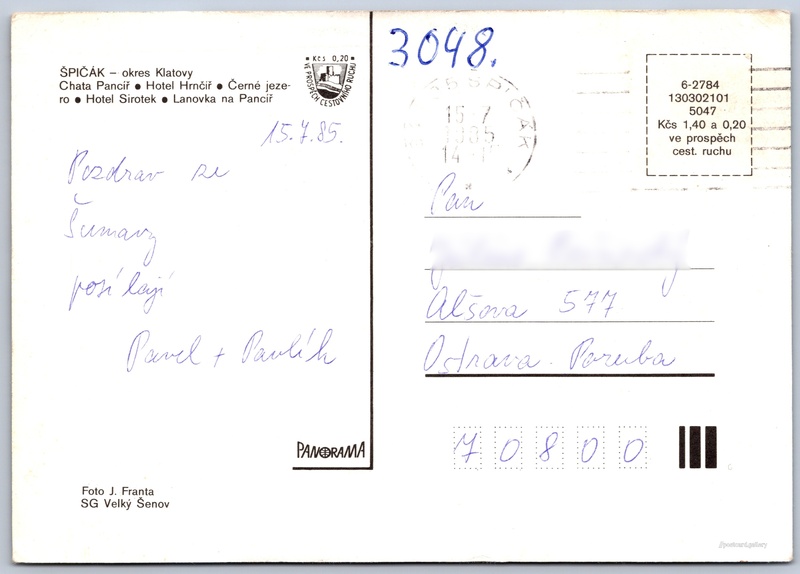 3048.
ŠPIČÁK – okres Klatovy
Chata Pancíř ● Hotel Hrnčíř ● Černé jeze-
ro ● Hotel Sirotek ● Lanovka na Pancíř
Kčs 0,20
VE PROSPĚCH CESTOVNÍHO RUCHU
15.7.85.
Pozdrav ze
Šumavy
posílají
Pavel + Pavlík
PANORAMA
Foto J. Franta
SG Velký Šenov
ŠPIČÁK
15.7
1985
14
6-2784
130302101
5047
Kčs 1,40 a 0,20
ve prospěch
cest. ruchu
Pan
Alšova 577
Ostrava-Poruba
70800
postcard.gallery